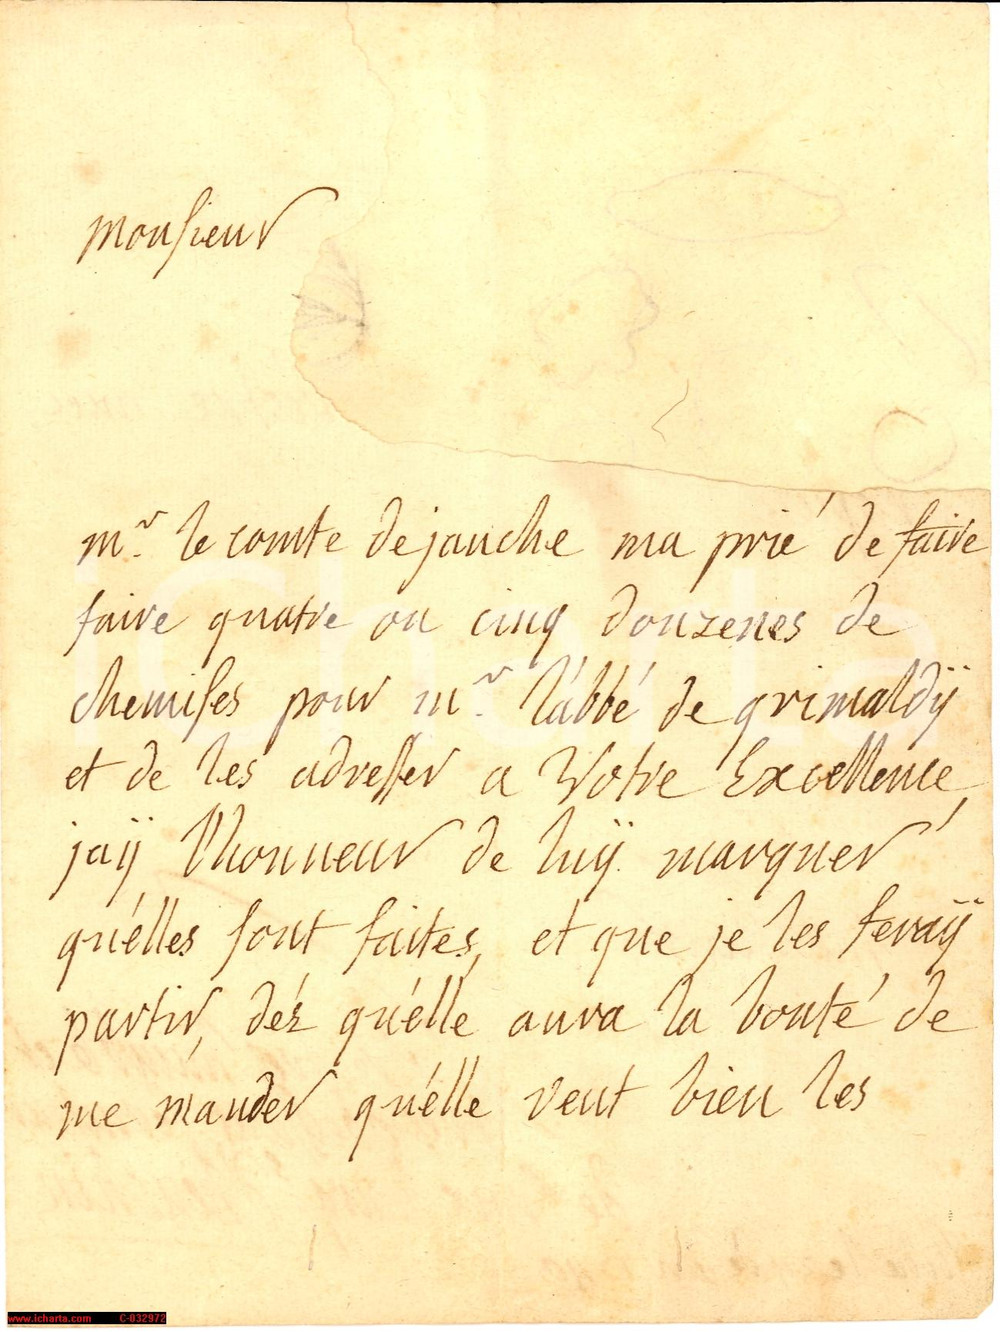 monsieur
mr. le comte de jauche ma prié de faire
faire quatre ou cinq douzenes de
chemises pour mr. l'abbé de grimaldÿ
et de les adresser a Votre Excellence,
jaÿ l'honneur de luÿ marquer
qu'élles sont faites, et que je les feraÿ
partir, dés qu'élle aura la bonté de
me mander qu'élle veut bien les
iCharta
www.icharta.com C-032972